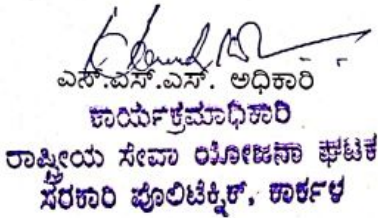 ಎಸ್.ಎಸ್.ಎಸ್. ಅಧಿಕಾರಿ
ಕಾರ್ಯಕ್ರಮಾಧಿಕಾರಿ
ರಾಷ್ಟ್ರೀಯ ಸೇವಾ ಯೋಜನಾ ಘಟಕ
ಸರಕಾರಿ ಪೊಲಿಟೆಕ್ನಿಕ್, ಕಾರ್ಕಳ